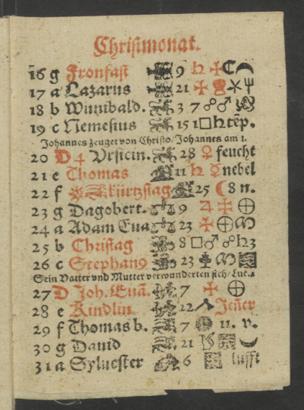 Christmonat.
16 g Fronfast 9 ♄
17 a Lazarus 21
18 b Wunibald. 3 7 ♂
19 c Nemesius 15 1 □ ♄ tēp.
Johannes zeuget von Christo/ Johannes am 1.
20 D 4 Vrsicin. 28 ♀ feucht
21 e Thomas 11 ♄ nebel
22 f Kürtzstag 25 ☾ 8 n.
23 g Dagobert. 9 ♃
24 a Adam Eua 23
25 b Christag 8 □ ♂ ♄ 23
26 c Stephan9 23
Sein Vatter vnd Mutter verwunderten sich/ Luc. 2
27 D Joh. Euā. 7
28 e Kindlin. 22 Jeñer
29 f Thomas b. 7 11. v.
30 g Dauid 21
31 a Sylvester 6 lufft